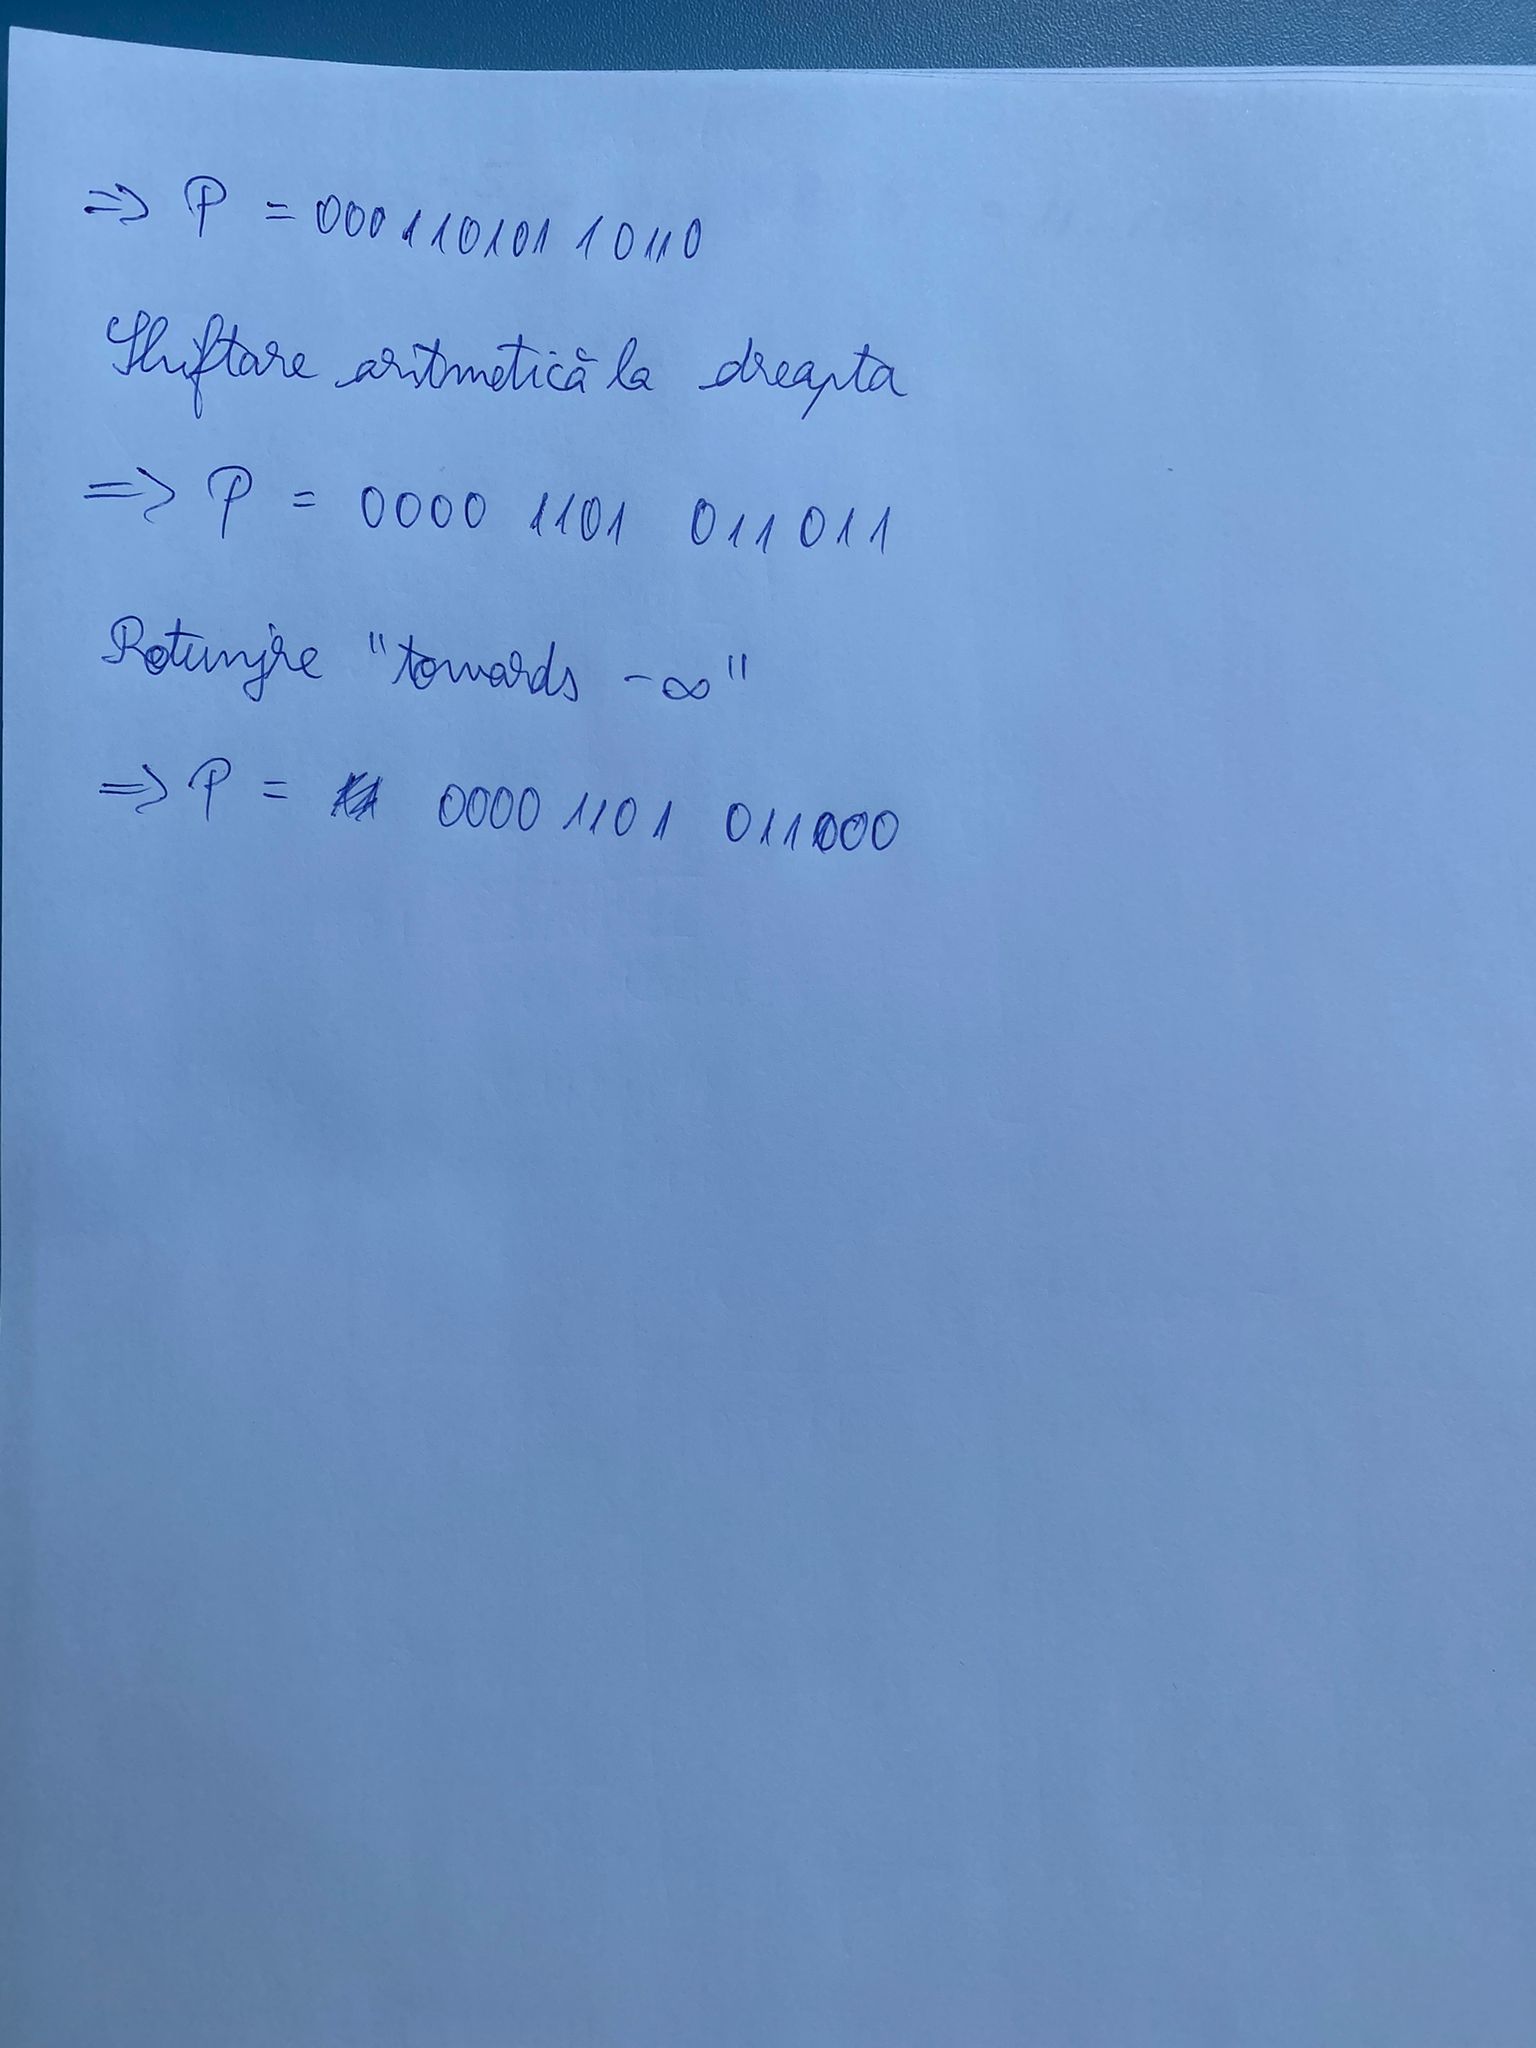 => P = 00011010110110
Shiftare aritmetică la dreapta
=> P = 0000 1101 011011
Rotunjire "towards -∞"
=> P = 0000 1101 011000